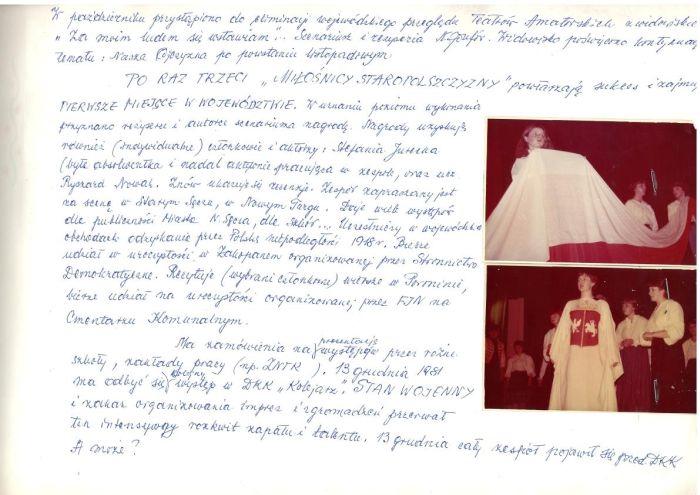 W październiku przystąpiono do eliminacji wojewódzkiego przeglądu Teatrów Amatorskich z widowiskiem
"Za moim ludem się wstawiam"... Scenariusz i reżyseria N. Widowisko poświęcono kontynuacji
tematu: Nasza Ojczyzna po powstaniu listopadowym.
PO RAZ TRZECI "MIŁOŚNICY STAROPOLSZCZYZNY" powtarzają sukces i zajmują
PIERWSZE MIEJSCE W WOJEWÓDZTWIE. W uznaniu poziomu wykonania
przyznano reżyserce i autorce scenariusza nagrodę. Nagrody uzyskują
również (indywidualne) członkowie i aktorzy: Stefania
(była absolwentka i nadal aktywnie pracująca w zespole, oraz ucz
Ryszard Nowak. Znów ukazuje się recenzje. Zespół zapraszany jest
na scenę w Starym Sączu, w Nowym Targu. Daje wiele występów
dla publiczności Miasta N. Sącza, dla szkół... Uczestniczy w wojewódzkich
obchodach odzyskania przez Polskę niepodległości 1918 r. Bierze
udział w uroczystości w Zakopanem organizowanej przez Stronnictwo
Demokratyczne. Recytuje (wybrani członkowie) wiersze w Poroninie,
bierze udział na uroczystości organizowanej przez FJN na
Cmentarzu Komunalnym.
Ma zamówienia na prezentacje występów przez różne
szkoły, zakłady pracy (np. ZNTK). 13 grudnia 1981
ma odbyć się kolejny występ w DKK "Kolejarz". STAN WOJENNY
i zakaz organizowania imprez i zgromadzeń przerwał
ten intensywny rozkwit zapału i talentu. 13 grudnia cały zespół pojawił się przed DKK
A może?